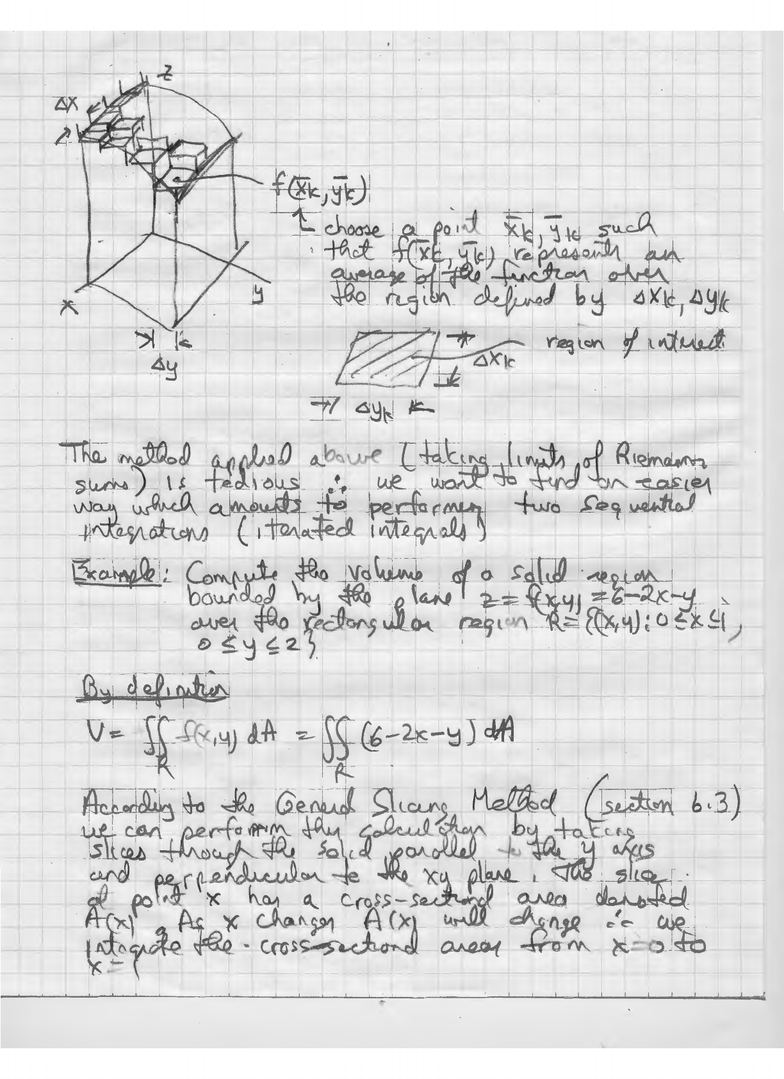 z
Δx
f(x̄k, ȳk)
choose a point x̄k, ȳk such
that f(x̄k, ȳk) represents an
average of the function over
the region defined by Δxk, Δyk
x
y
Δy
region of interest
Δxk
Δyk
The method applied above (taking limits of Riemann
sums) is tedious ∴ we want to find an easier
way which amounts to performing two sequential
integrations (iterated integrals)
Example: Compute the volume of a solid region
bounded by the plane z = f(x,y) = 6-2x-y
over the rectangular region R = {(x,y): 0 ≤ x ≤ 1,
0 ≤ y ≤ 2}
By definition
V = ∬ f(x,y) dA = ∬ (6-2x-y) dA
R R
According to the General Slicing Method (section 6.3)
we can perform this calculation by taking
slices through the solid parallel to the y axis
and perpendicular to the xy plane. The slice
at point x has a cross-sectional area denoted
A(x). As x changes A(x) will change ∴ we
integrate the cross-sectional areas from x=0 to
x=1